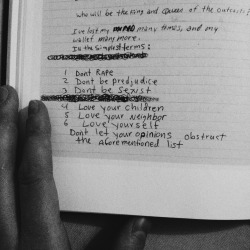 who will be the king and queen of the outcasts
I've lost my many times, and my
wallet many more.
In the simplest terms:
1 Dont RAPE
2 Dont be predjudice
3 Dont be sexist
4 Love your children
5 Love your neighbor
6 Love yourself
Dont let your opinions obstruct
the aforementioned list